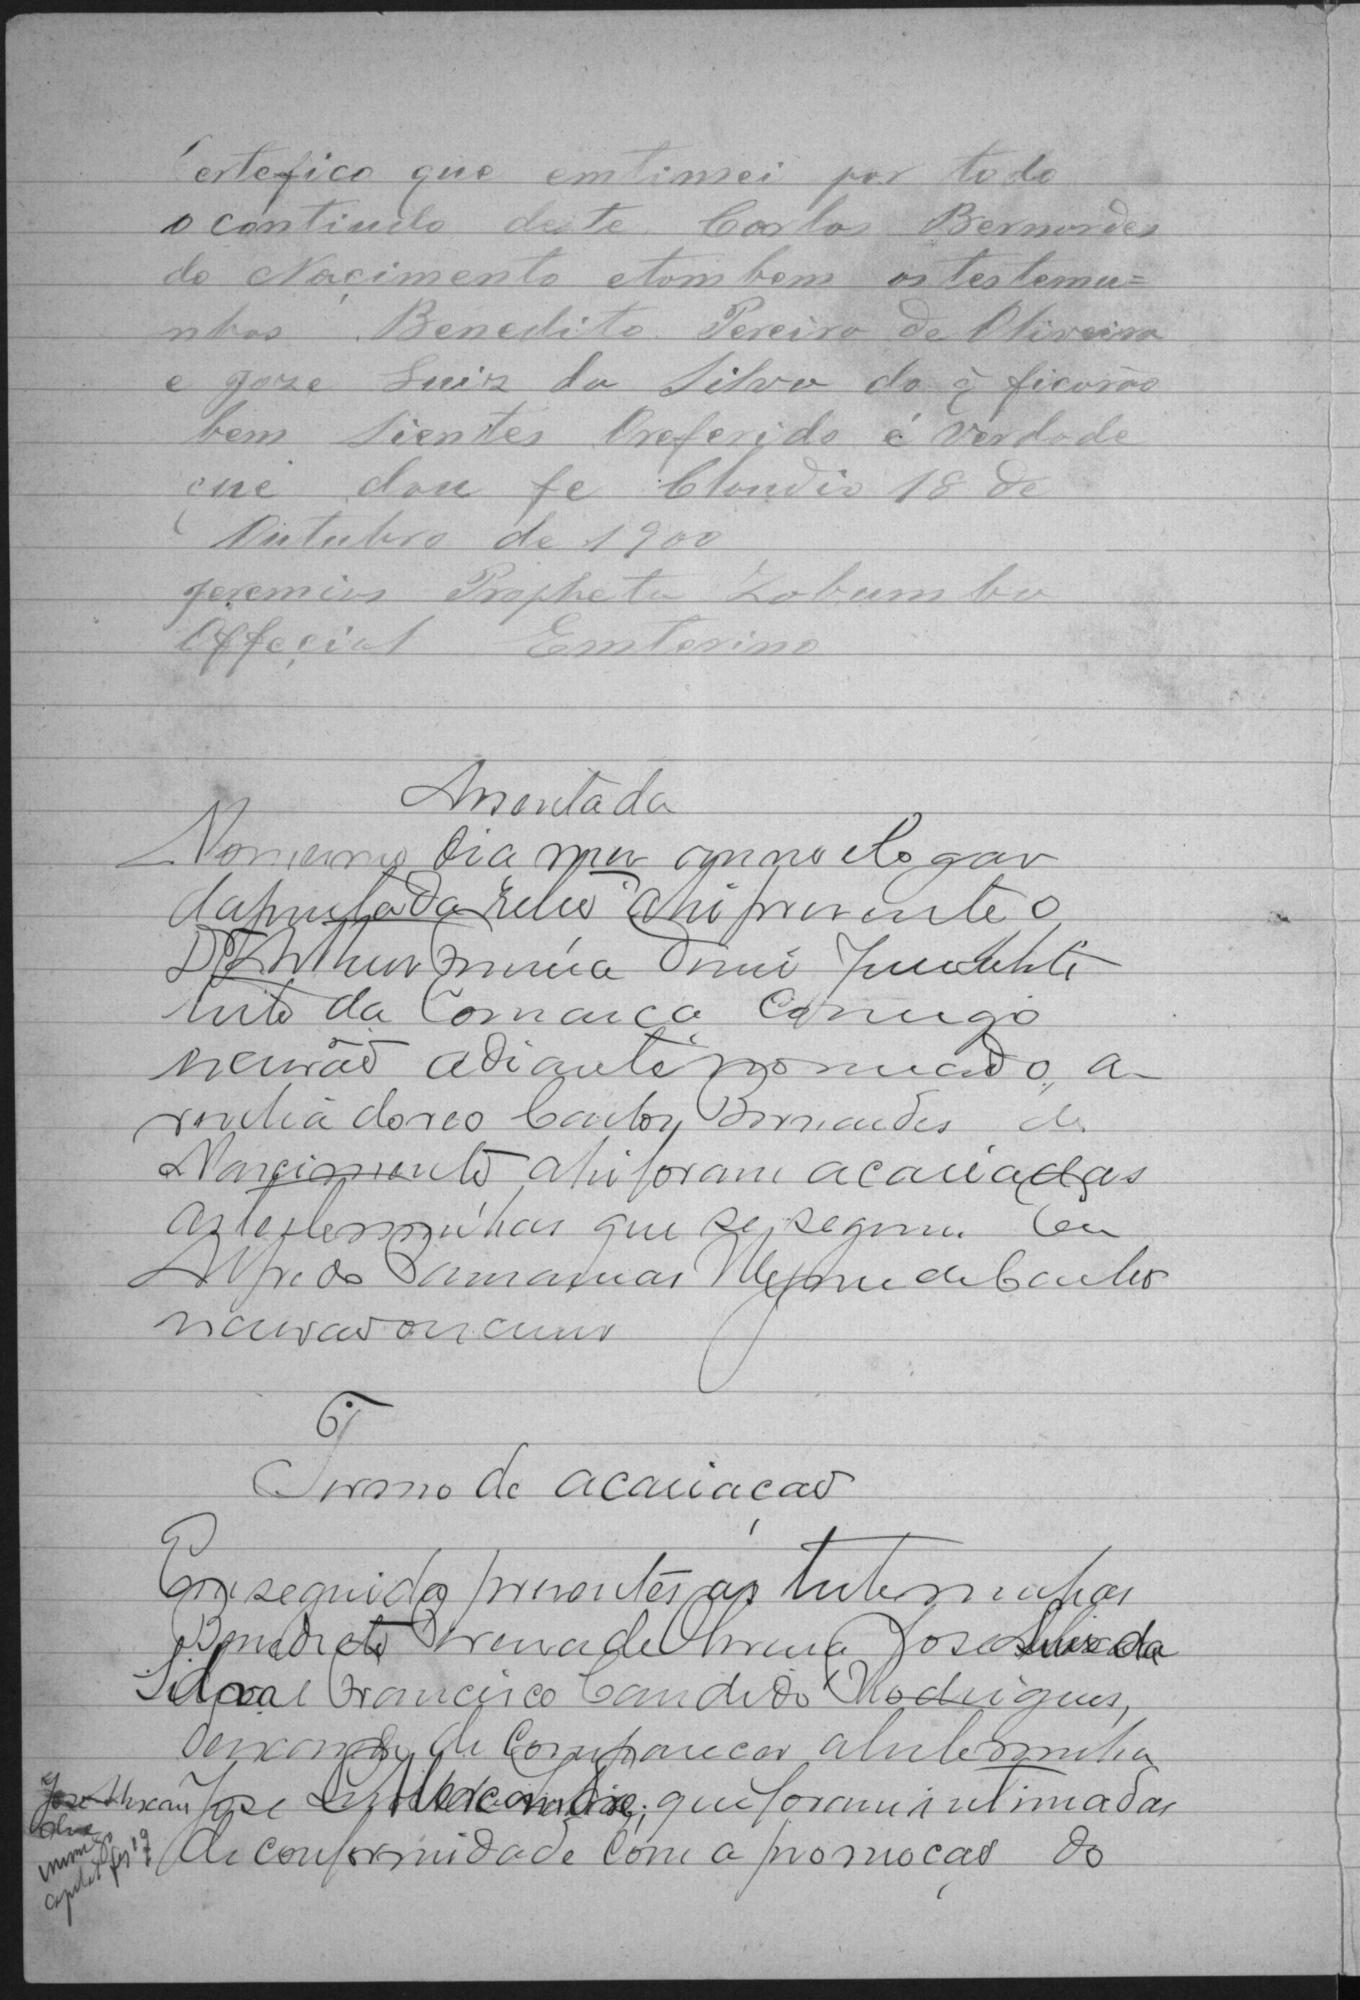 Certefico que emtimei por todo
o contiudo deste Carlos Bernardes
do Naçimento etombem as testemu=
nhas Benedito Pereira de Oliveira
e Joze Luiz da Silva do q̃ ficarão
bem sientes Oreferido é verdade
que dou fe Claudio 18 de
Outubro de 1900
Jeremias Propheta Zabumba
Offeçial Emterino
Assentada
No mesmo dia mez anno e logar
da 
D.or Arthur Diniz Juiz Substi
tuto da Comarca Comigo
escrivão adiante nomeado, a
revelia do reo Carlos Bernardes do
Nascimento ahi foram acariadas
as testemunhas que se seguem Eu
Alfredo de Castro
escrivão
Termo de acariação
Em seguida presentes as testemunhas
Benedicto Pereira de Oliveira José Luiz da
Silva e Francisco Candido Rodrigues,
deixando de comparecer a testemunha
Jose Alexandre; que foram intimadas
de conformidade com a promoção do
José Alexan